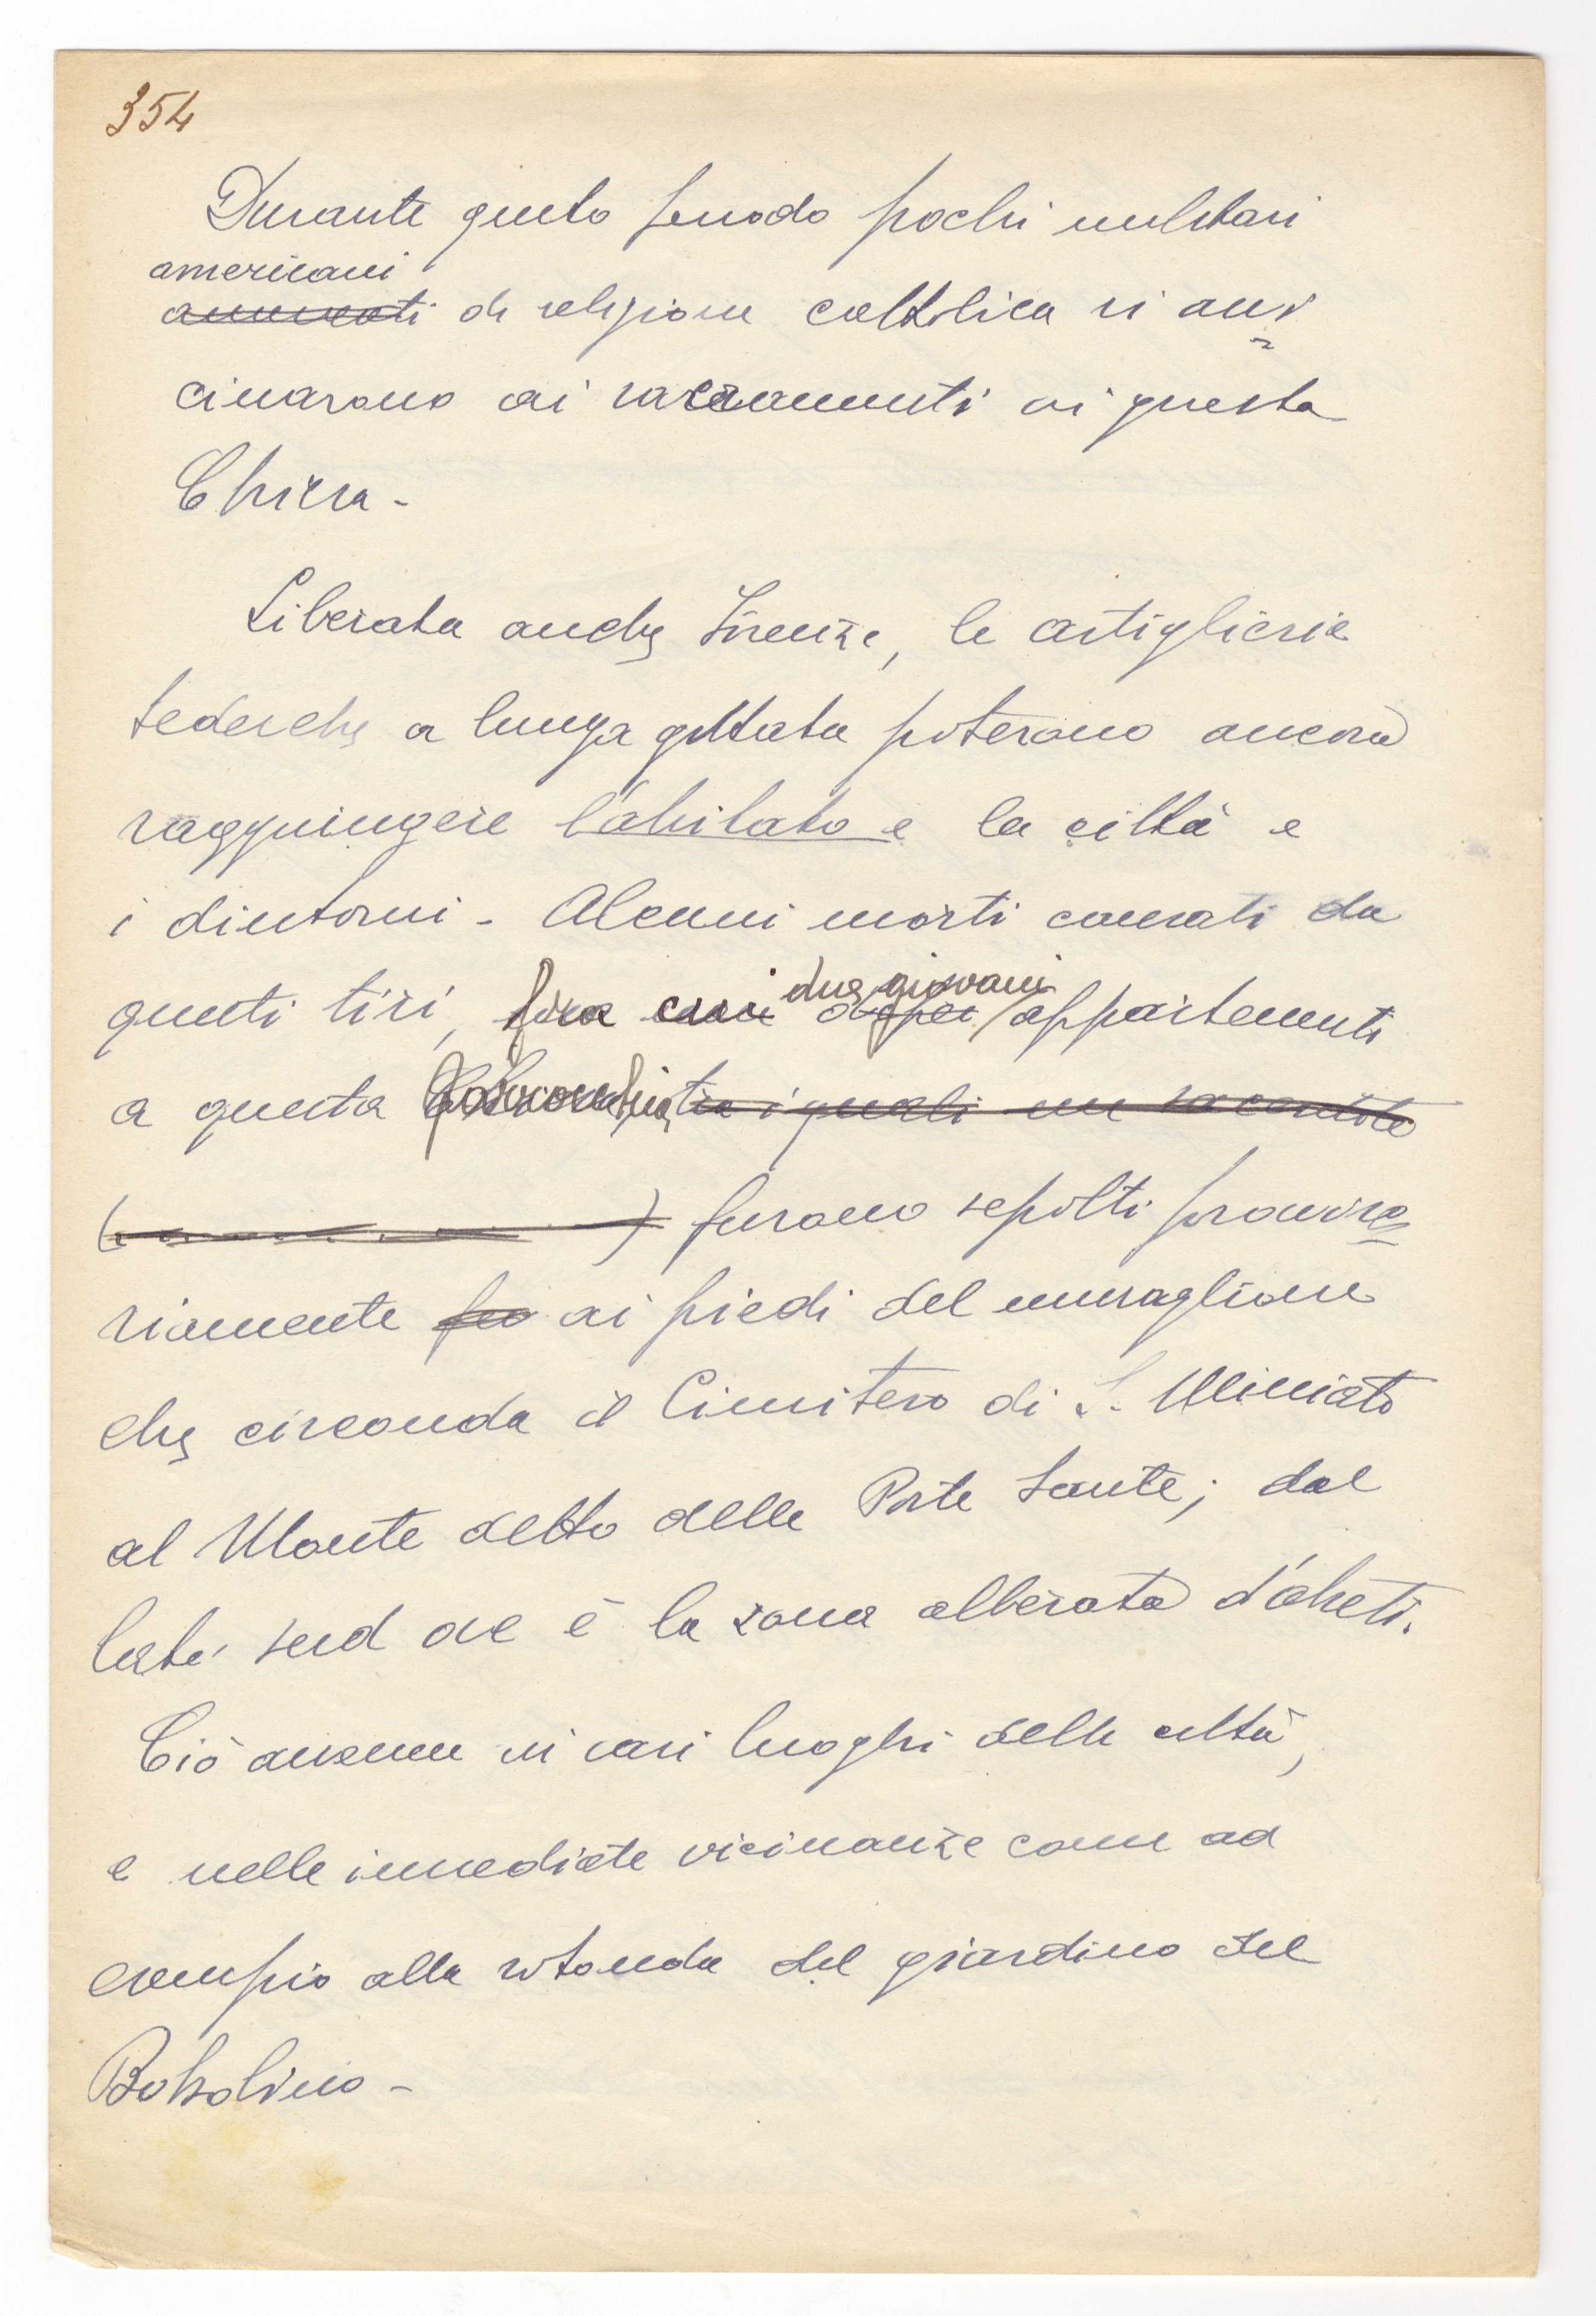 354
Durante questo periodo pochi militari
americani
annunenti di religione cattolica si avvi
cinarono ai sacramenti in questa
Chiesa -
Liberata anche Firenze, le artiglierie
tedesche a lunga gittata poterono ancora
raggiungere l'abitato e la città e
i dintorni - Alcuni morti causati da
due giovani
questi tiri, fra cui dopei appartenenti
a questa Parrocchia tra i quali un sacerdote
( ) furono sepolti provviso
riamente fu ai piedi del muraglione
che circonda il Cimitero di S. Miniato
al Monte detto delle Porte Sante; dal
lato sud ove è la zona alberata d'abeti.
Ciò avvenne in vari luoghi della città,
e nelle immediate vicinanze come ad
esempio alla rotonda del giardino del
Bobolino -